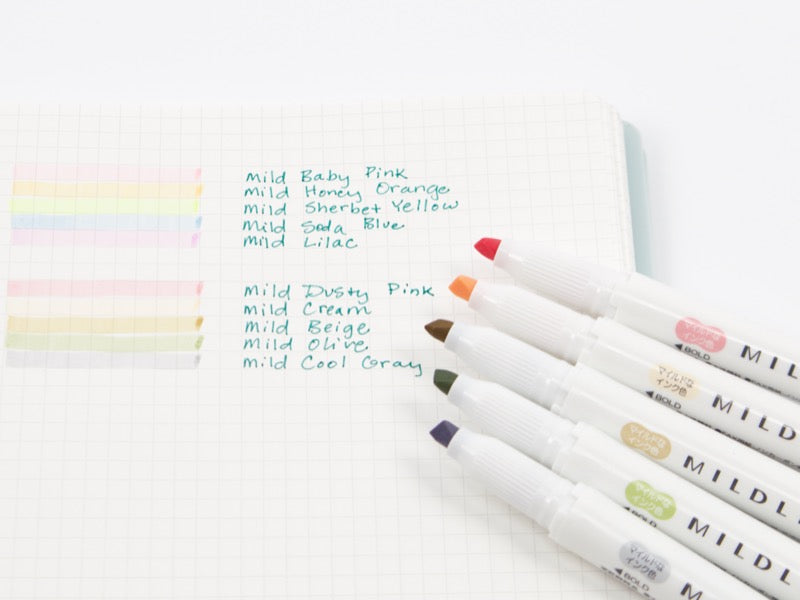 mild Baby Pink
mild Honey Orange
mild Sherbet Yellow
mild Soda Blue
mild Lilac
mild Dusty Pink
mild Cream
mild Beige
mild Olive
mild Cool Gray
マイルドな
インク色
◀BOLD
MIL
マイルドな
インク色
◀BOLD
MILD
マイルドな
インク色
MILDL
マイルドな
インク色
◀BOLD
MILDL
マイルドな
インク色
◀BOLD
MILD